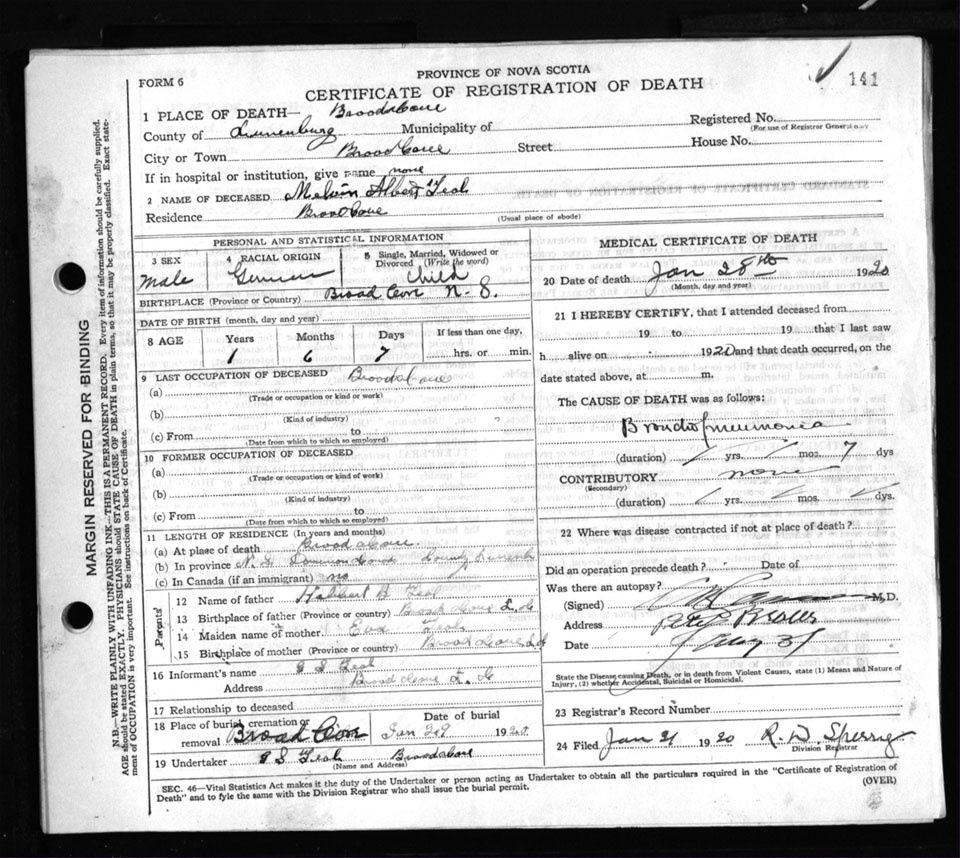 PROVINCE OF NOVA SCOTIA
FORM 6
CERTIFICATE OF REGISTRATION OF DEATH
141
1 PLACE OF DEATH— Broad Cove
Registered No.
(For use of Registrar General only
County of Lunenburg Municipality of
City or Town Broad Cove Street House No.
If in hospital or institution, give name none
2 NAME OF DECEASED Melvin Albert Teal
Residence Broad Cove
(Usual place of abode)
PERSONAL AND STATISTICAL INFORMATION
3 SEX Male
4 RACIAL ORIGIN German
5 Single, Married, Widowed or Divorced (Write the word) Child
BIRTHPLACE (Province or Country) Broad Cove N. S.
DATE OF BIRTH (month, day and year)
8 AGE Years Months Days If less than one day,
1 6 7 hrs. or min.
9 LAST OCCUPATION OF DECEASED Broad Cove
(a)
(Trade or occupation or kind or work)
(b)
(Kind of industry)
(c) From to
(Date from which to which so employed)
10 FORMER OCCUPATION OF DECEASED
(a)
(Trade or occupation or kind of work)
(b)
(Kind of industry)
(c) From to
(Date from which to which so employed)
11 LENGTH OF RESIDENCE (In years and months)
(a) At place of death Broad Cove
(b) In province N. S. County
(c) In Canada (if an immigrant) no
Parents
12 Name of father B Teal
13 Birthplace of father (Province or country) Broad Cove L. Co
14 Maiden name of mother Eva Teal
15 Birthplace of mother (Province or country) Broad Cove L. Co
16 Informant's name S Teal
Address Broad Cove L. Co
17 Relationship to deceased
18 Place of burial, cremation or removal Broad Cove
Date of burial
Jan 29 1920
19 Undertaker S Teal Broad Cove
(Name and Address)
MEDICAL CERTIFICATE OF DEATH
20 Date of death Jan 28th 1920
(Month, day and year)
21 I HEREBY CERTIFY, that I attended deceased from
19 to 19 that I last saw
h alive on 1920 and that death occurred, on the
date stated above, at m.
The CAUSE OF DEATH was as follows:
Broncho pneumonia
(duration) / yrs. / mos. 7 dys
CONTRIBUTORY none
(Secondary)
(duration) / yrs. / mos. / dys.
22 Where was disease contracted if not at place of death?
Did an operation precede death? Date of
Was there an autopsy?
(Signed) M.D.
Address
Date
State the Disease causing Death, or in death from Violent Causes, state (1) Means and Nature of
Injury, (2) whether Accidental, Suicidal or Homicidal.
23 Registrar's Record Number
24 Filed Jan 1920
Division Registrar
SEC. 46—Vital Statistics Act makes it the duty of the Undertaker or person acting as Undertaker to obtain all the particulars required in the "Certificate of Registration of
Death" and to fyle the same with the Division Registrar who shall issue the burial permit.
(OVER)
MARGIN RESERVED FOR BINDING
N.B.—WRITE PLAINLY WITH UNFADING INK—THIS IS A PERMANENT RECORD. Every item of information should be carefully supplied.
AGE should be stated EXACTLY. PHYSICIANS should STATE CAUSE OF DEATH in plain terms, so that it may be properly classified. Exact state-
ment of OCCUPATION is very important. See instructions on back of Certificate.